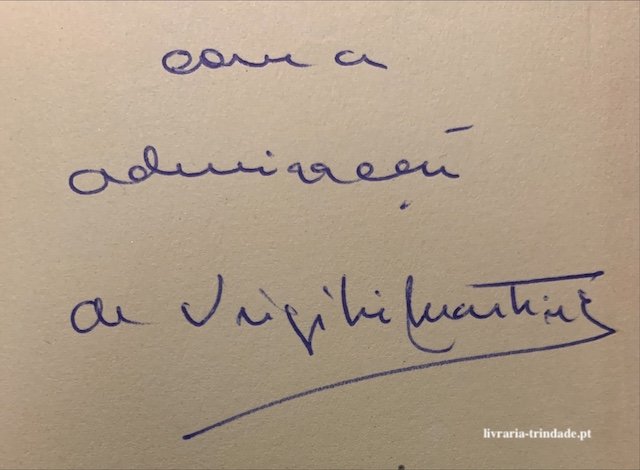 com a
admiração
de Virgílio Martinho
livraria-trindade.pt